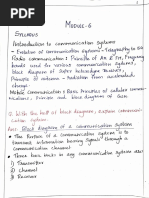 MODULE-6
SYLLABUS
Introduction to communication systems
- Evolution of communication systems - Telegraphy to 5G
Radio communication: Principle of AM & FM, Frequency
of various communication systems,
block diagram of super heterodyne receiver,
Principle of antenna - radiation from
Mobile communication: Basic principles of cellular
communications, Principle and block diagram of GSM
Q. With the help of block diagram,
system
Ans: Block diagram of a communication system
The purpose of a communication system is to transmit
information bearing signals through a
communication channel
Three basic units in any communication system are:
1) Transmitter
2) Channel
3) Receiver